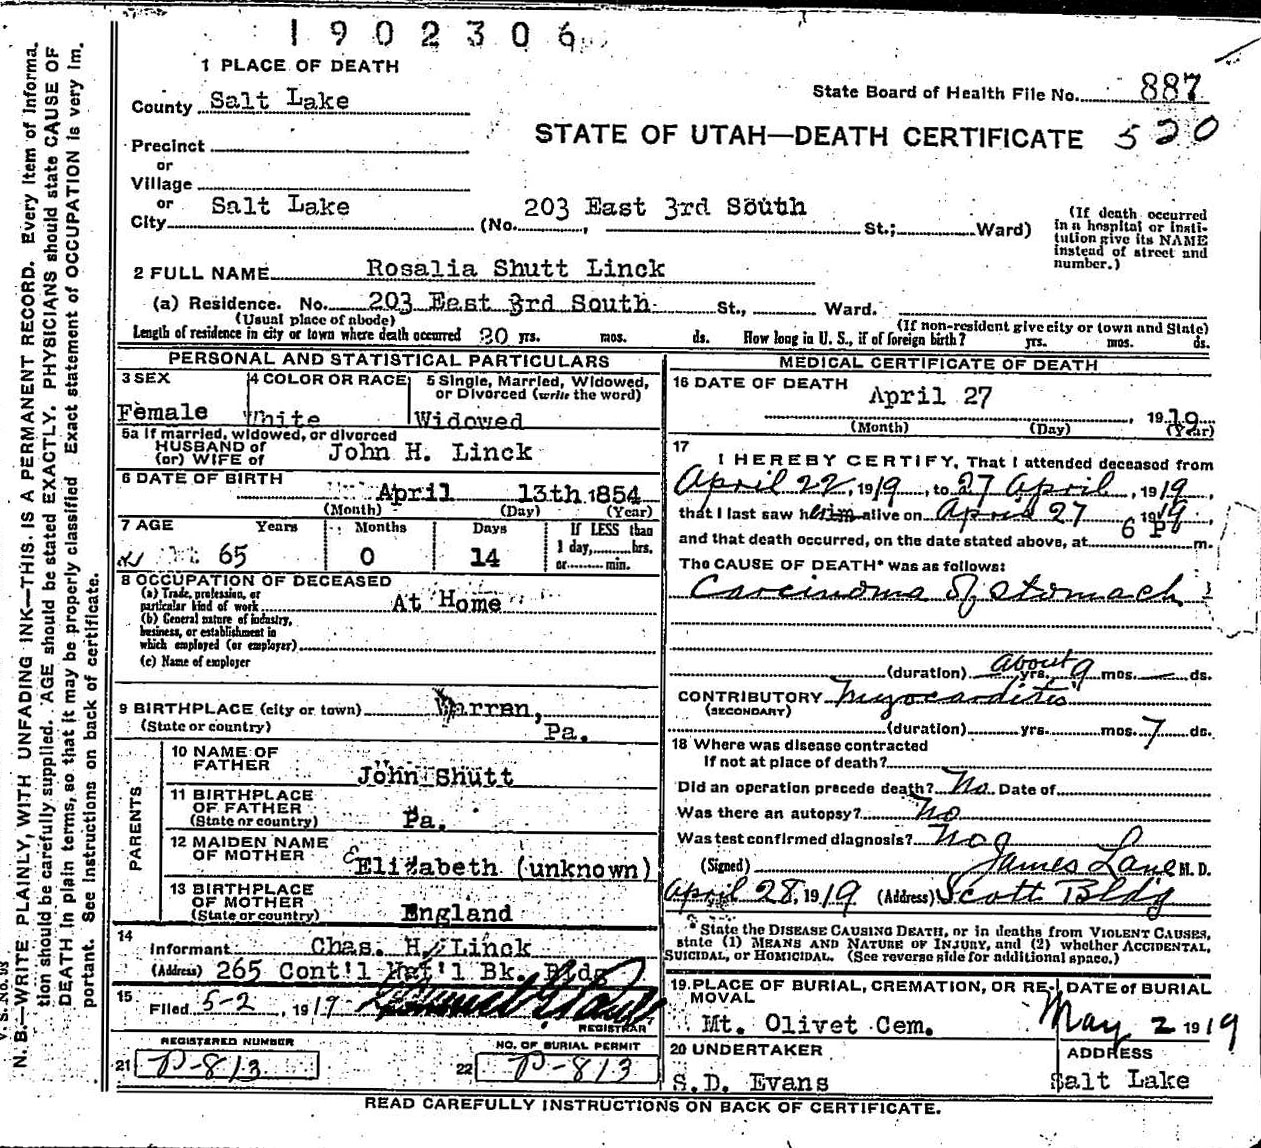 1902306
1 PLACE OF DEATH
County Salt Lake
State Board of Health File No. 887
STATE OF UTAH—DEATH CERTIFICATE 520
Precinct
or
Village
or
City Salt Lake (No. 203 East 3rd South St.; Ward)
(If death occurred in a hospital or insti-
tution give its NAME
instead of street and
number.)
2 FULL NAME Rosalia Shutt Linck
(a) Residence. No. 203 East 3rd South St., Ward.
(Usual place of abode) (If non-resident give city or town and State)
Length of residence in city or town where death occurred 30 yrs. mos. ds. How long in U. S., if of foreign birth? yrs. mos. ds.
PERSONAL AND STATISTICAL PARTICULARS
3 SEX 4 COLOR OR RACE 5 Single, Married, Widowed,
or Divorced (write the word)
Female White Widowed
5a If married, widowed, or divorced
HUSBAND of
(or) WIFE of John H. Linck
6 DATE OF BIRTH April 13th 1854
(Month) (Day) (Year)
7 AGE Years Months Days If LESS than
1 day, hrs.
or min.
65 0 14
8 OCCUPATION OF DECEASED
(a) Trade, profession, or
particular kind of work At Home
(b) General nature of industry,
business, or establishment in
which employed (or employer)
(c) Name of employer
9 BIRTHPLACE (city or town) Warren,
(State or country) Pa.
PARENTS
10 NAME OF
FATHER John Shutt
11 BIRTHPLACE
OF FATHER
(State or country) Pa.
12 MAIDEN NAME
OF MOTHER Elizabeth (unknown)
13 BIRTHPLACE
OF MOTHER
(State or country) England
14
Informant Chas. H. Linck
(Address) 265 Cont'l Nat'l Bk. Bldg
15
Filed 5-2, 1919
REGISTRAR
REGISTERED NUMBER NO. OF BURIAL PERMIT
21 P-813 22 P-813
MEDICAL CERTIFICATE OF DEATH
16 DATE OF DEATH
April 27, 1919
(Month) (Day) (Year)
17
I HEREBY CERTIFY, That I attended deceased from
April 22, 1919, to 27 April, 1919,
that I last saw him alive on April 27 1919,
and that death occurred, on the date stated above, at 6 P m.
The CAUSE OF DEATH* was as follows:
Carcinoma of stomach
(duration) About yrs. 9 mos. — ds.
CONTRIBUTORY Myocarditis
(SECONDARY)
(duration) yrs. mos. 7 ds.
18 Where was disease contracted
If not at place of death?
Did an operation precede death? No. Date of
Was there an autopsy? No
Was test confirmed diagnosis? No
(Signed) James Lane M. D.
April 28, 1919 (Address) Scott Bldg
* State the DISEASE CAUSING DEATH, or in deaths from VIOLENT CAUSES,
state (1) MEANS AND NATURE OF INJURY, and (2) whether ACCIDENTAL,
SUICIDAL, or HOMICIDAL. (See reverse side for additional space.)
19. PLACE OF BURIAL, CREMATION, OR RE-
MOVAL
DATE of BURIAL
Mt. Olivet Cem. May 2 1919
20 UNDERTAKER ADDRESS
S.D. Evans Salt Lake
READ CAREFULLY INSTRUCTIONS ON BACK OF CERTIFICATE.
V. S. No. 98
N. B.—WRITE PLAINLY, WITH UNFADING INK—THIS IS A PERMANENT RECORD. Every item of informa-
tion should be carefully supplied. AGE should be stated EXACTLY. PHYSICIANS should state CAUSE OF
DEATH in plain terms, so that it may be properly classified. Exact statement of OCCUPATION is very im-
portant. See instructions on back of certificate.